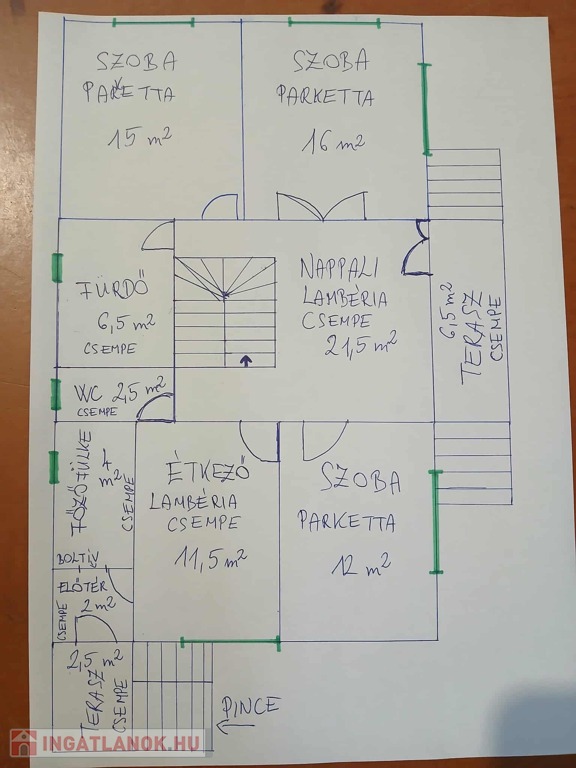 SZOBA
PARKETTA
15 m²
SZOBA
PARKETTA
16 m²
FÜRDŐ
6,5 m²
CSEMPE
NAPPALI
LAMBÉRIA
CSEMPE
21,5 m²
6,5 m²
TERASZ
CSEMPE
WC 2,5 m²
CSEMPE
FŐZŐFÜLKE
4 m²
CSEMPE
BOLTÍV
ÉTKEZŐ
LAMBÉRIA
CSEMPE
11,5 m²
SZOBA
PARKETTA
12 m²
ELŐTÉR
2 m²
CSEMPE
2,5 m²
TERASZ
CSEMPE
PINCE
INGATLANOK.HU